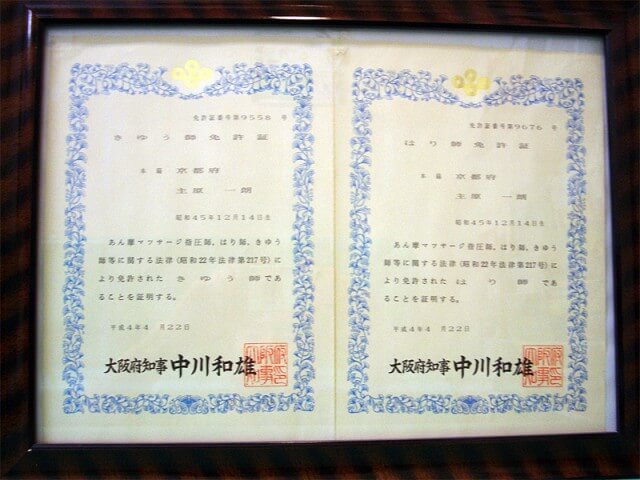 免許証番号第9558 号
きゆう師免許証
本籍 京都府
主原 一朗
昭和45年12月14日生
あん摩マツサージ指圧師、はり師、きゆう
師等に関する法律(昭和22年法律第217号)に
より免許された きゆう師 であ
ることを証明する。
平成4年4 月22日
大阪府知事 中川和雄
免許証番号第9676 号
はり師免許証
本籍 京都府
主原 一朗
昭和45年12月14日生
あん摩マツサージ指圧師、はり師、きゆう
師等に関する法律(昭和22年法律第217号)に
より免許された はり師 であ
ることを証明する。
平成4年4 月22日
大阪府知事 中川和雄